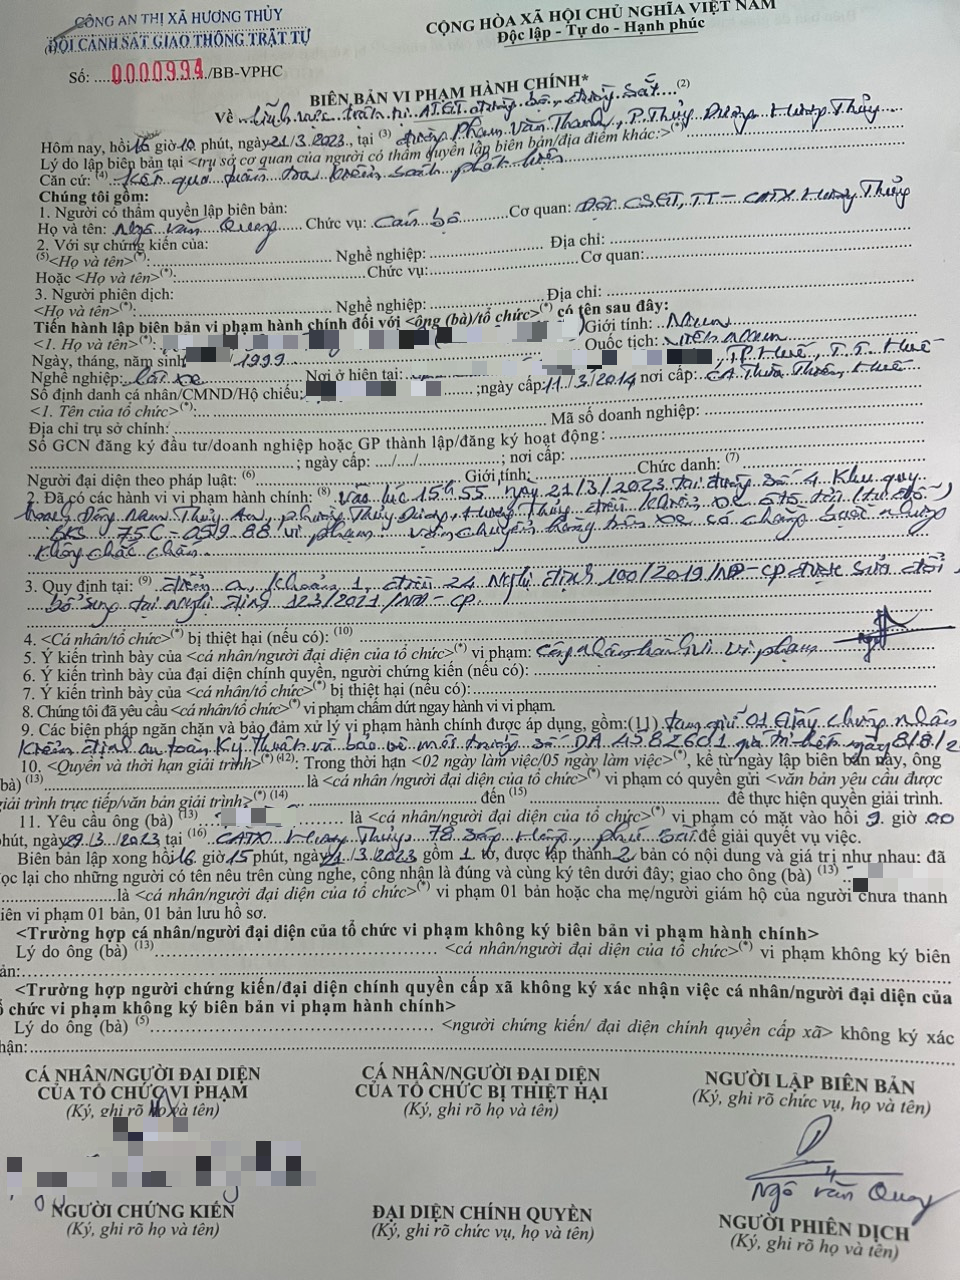 CÔNG AN THỊ XÃ HƯƠNG THỦY
ĐỘI CẢNH SÁT GIAO THÔNG TRẬT TỰ
CỘNG HÒA XÃ HỘI CHỦ NGHĨA VIỆT NAM
Độc lập - Tự do - Hạnh phúc
Số: ....0000994./BB-VPHC
BIÊN BẢN VI PHẠM HÀNH CHÍNH*
Về lĩnh vực trật tự ATGT đường bộ, đường sắt (2)
Hôm nay, hồi 16 giờ 10 phút, ngày 21/3/2023, tại (3) đường Phạm Văn Thanh, P. Thủy Dương, Hương Thủy
Lý do lập biên bản tại <trụ sở cơ quan của người có thẩm quyền lập biên bản/địa điểm khác:>(*)
Căn cứ: (4) Kết quả tuần tra kiểm soát phát hiện
Chúng tôi gồm:
1. Người có thẩm quyền lập biên bản:
Họ và tên: Ngô Văn Quang Chức vụ: Cán bộ Cơ quan: Đội CSGT, TT - CATX Hương Thủy
2. Với sự chứng kiến của:
(5)<Họ và tên>(*): Nghề nghiệp: Địa chỉ:
Hoặc <Họ và tên>(*): Chức vụ: Cơ quan:
3. Người phiên dịch:
<Họ và tên>(*): Nghề nghiệp: Địa chỉ:
Tiến hành lập biên bản vi phạm hành chính đối với <ông (bà)/tổ chức>(*) có tên sau đây:
<1. Họ và tên>(*): Giới tính: Nam
Ngày, tháng, năm sinh /1999 Quốc tịch: Việt Nam
Nghề nghiệp: Lái xe Nơi ở hiện tại: , TP Huế, T.T. Huế
Số định danh cá nhân/CMND/Hộ chiếu: ; ngày cấp: 11/3/2014 nơi cấp: CA Thừa Thiên Huế
<1. Tên của tổ chức>(*):
Địa chỉ trụ sở chính: Mã số doanh nghiệp:
Số GCN đăng ký đầu tư/doanh nghiệp hoặc GP thành lập/đăng ký hoạt động:
; ngày cấp: .../.../...; nơi cấp:
Người đại diện theo pháp luật: (6) Giới tính: Chức danh: (7)
2. Đã có các hành vi vi phạm hành chính: (8) Vào lúc 15h55 ngày 21/3/2023 tại đường số 4 Khu quy
hoạch Đông Nam Thủy An, phường Thủy Dương, Hương Thủy điều khiển xe ôtô tải (tự đổ)
BKS 75C-059.88 vi phạm: vận chuyển hàng trên xe có chằng buộc nhưng
không chắc chắn
3. Quy định tại: (9) điểm a, khoản 1, điều 24 Nghị định 100/2019/NĐ-CP được sửa đổi
bổ sung tại Nghị định 123/2021/NĐ-CP.
4. <Cá nhân/tổ chức>(*) bị thiệt hại (nếu có): (10)
5. Ý kiến trình bày của <cá nhân/người đại diện của tổ chức>(*) vi phạm: Công nhận hành vi vi phạm
6. Ý kiến trình bày của đại diện chính quyền, người chứng kiến (nếu có):
7. Ý kiến trình bày của <cá nhân/tổ chức>(*) bị thiệt hại (nếu có):
8. Chúng tôi đã yêu cầu <cá nhân/tổ chức>(*) vi phạm chấm dứt ngay hành vi vi phạm.
9. Các biện pháp ngăn chặn và bảo đảm xử lý vi phạm hành chính được áp dụng, gồm:(11) tạm giữ 01 Giấy chứng nhận
Kiểm định an toàn kỹ thuật và bảo vệ môi trường số DA 4582601 giá trị đến ngày 8/8/2
10. <Quyền và thời hạn giải trình>(*) (12): Trong thời hạn <02 ngày làm việc/05 ngày làm việc>(*), kể từ ngày lập biên bản này, ông
bà) (13) là <cá nhân /người đại diện của tổ chức>(*) vi phạm có quyền gửi <văn bản yêu cầu được
giải trình trực tiếp/văn bản giải trình>(*) (14) đến (15) để thực hiện quyền giải trình.
11. Yêu cầu ông (bà) (13) là <cá nhân/người đại diện của tổ chức>(*) vi phạm có mặt vào hồi 9 giờ 00
phút, ngày 29/3/2023 tại (16) CATX Hương Thủy 78 Sóng Hồng, Phú Bài để giải quyết vụ việc.
Biên bản lập xong hồi 16 giờ 15 phút, ngày 21/3/2023 gồm 1 tờ, được lập thành 2 bản có nội dung và giá trị như nhau: đã
đọc lại cho những người có tên nêu trên cùng nghe, công nhận là đúng và cùng ký tên dưới đây; giao cho ông (bà) (13)
là <cá nhân/người đại diện của tổ chức>(*) vi phạm 01 bản hoặc cha mẹ/người giám hộ của người chưa thành
iên vi phạm 01 bản, 01 bản lưu hồ sơ.
<Trường hợp cá nhân/người đại diện của tổ chức vi phạm không ký biên bản vi phạm hành chính>
Lý do ông (bà) (13) <cá nhân/người đại diện của tổ chức>(*) vi phạm không ký biên
ản:
<Trường hợp người chứng kiến/đại diện chính quyền cấp xã không ký xác nhận việc cá nhân/người đại diện của
ổ chức vi phạm không ký biên bản vi phạm hành chính>
Lý do ông (bà) (5) <người chứng kiến/ đại diện chính quyền cấp xã> không ký xác
hận:
CÁ NHÂN/NGƯỜI ĐẠI DIỆN
CỦA TỔ CHỨC VI PHẠM
(Ký, ghi rõ họ và tên)
CÁ NHÂN/NGƯỜI ĐẠI DIỆN
CỦA TỔ CHỨC BỊ THIỆT HẠI
(Ký, ghi rõ họ và tên)
NGƯỜI LẬP BIÊN BẢN
(Ký, ghi rõ chức vụ, họ và tên)
Ngô Văn Quang
NGƯỜI CHỨNG KIẾN
(Ký, ghi rõ họ và tên)
ĐẠI DIỆN CHÍNH QUYỀN
(Ký, ghi rõ chức vụ, họ và tên)
NGƯỜI PHIÊN DỊCH
(Ký, ghi rõ họ và tên)